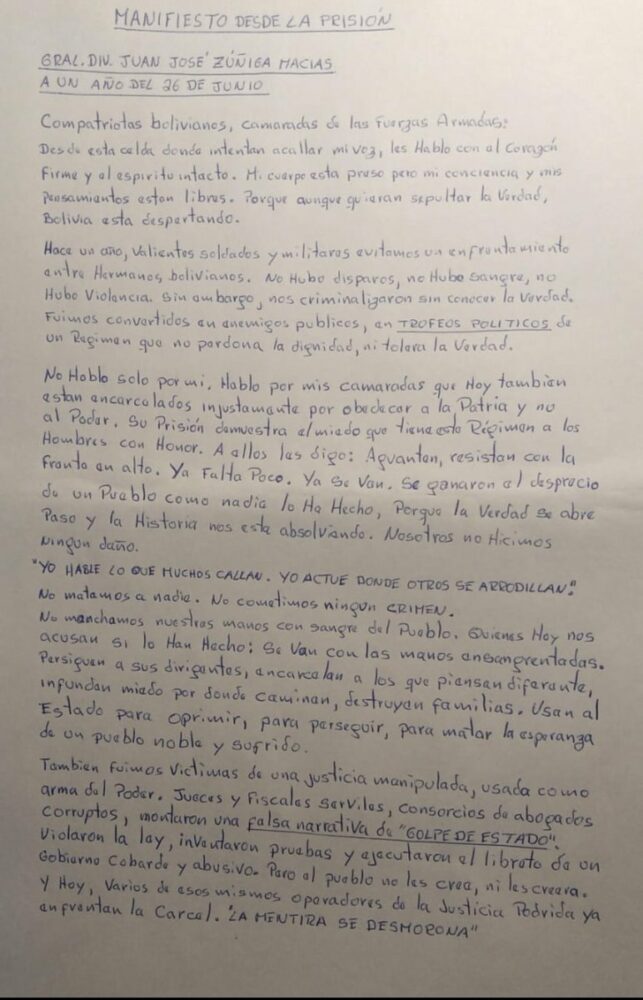 MANIFIESTO DESDE LA PRISIÓN
GRAL. DIV. JUAN JOSÉ ZÚÑIGA MACIAS
A UN AÑO DEL 26 DE JUNIO
Compatriotas bolivianos, camaradas de las Fuerzas Armadas:
Desde esta celda donde intentan acallar mi voz, les Hablo con el Corazón
Firme y el espiritu intacto. Mi cuerpo esta preso pero mi conciencia y mis
Pensamientos estan libres. Porque aunque quieran sepultar la Verdad,
Bolivia esta despertando.
Hace un año, Valientes soldados y militares evitamos un enfrentamiento
entre Hermanos bolivianos. No Hubo disparos, no Hubo Sangre, no
Hubo Violencia. Sin embargo, nos criminalizaron sin conocer la Verdad.
Fuimos convertidos en enemigos publicos, en TROFEOS POLITICOS de
un Regimen que no perdona la dignidad, ni tolera la Verdad.
No Hablo solo por mi. Hablo por mis camaradas que Hoy tambien
estan encarcelados injustamente por obedecer a la Patria y no
al Poder. Su Prisión demuestra el miedo que tiene este Régimen a los
Hombres con Honor. A ellos les digo: Aguanten, resistan con la
frente en alto. Ya Falta Poco. Ya Se Van. Se ganaron el desprecio
de un Pueblo como nadie lo Ha Hecho, Porque la Verdad se abre
Paso y la Historia nos esta absolviendo. Nosotros no Hicimos
ningun daño.
"YO HABLE LO QUE MUCHOS CALLAN. YO ACTUE DONDE OTROS SE ARRODILLAN".
No matamos a nadie. No cometimos ningun CRIMEN.
No manchamos nuestras manos con sangre del Pueblo. Quienes Hoy nos
acusan si lo Han Hecho: Se Van con las manos ensangrentadas.
Persiguen a sus dirigentes, encarcelan a los que piensan diferente,
infunden miedo por donde caminan, destruyen familias. Usan al
Estado para oprimir, para perseguir, para matar la esperanza
de un pueblo noble y sufrido.
Tambien fuimos Victimas de una justicia manipulada, usada como
arma del Poder. Jueces y Fiscales serviles, consorcios de abogados
corruptos, montaron una falsa narrativa de "GOLPE DE ESTADO".
Violaron la ley, inventaron pruebas y ejecutaron el libreto de un
Gobierno Cobarde y abusivo. Pero el pueblo no les cree, ni les creera.
Y Hoy, Varios de esos mismos operadores de la Justicia Podrida ya
enfrentan la Carcel. "LA MENTIRA SE DESMORONA"